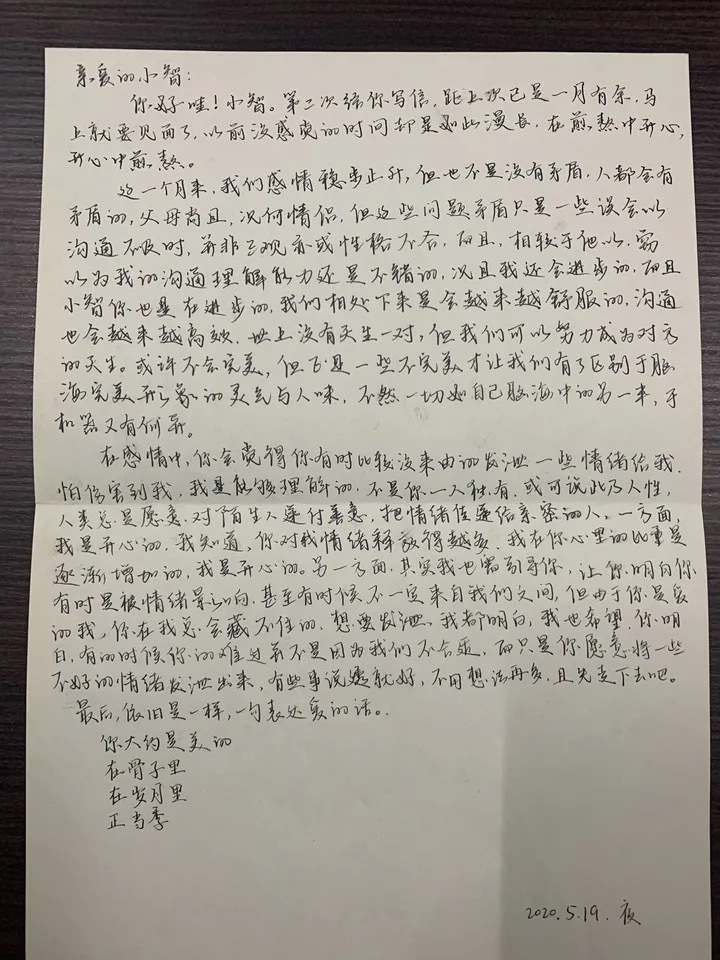 亲爱的小智：
你好哇！小智。第二次给你写信，距上次已是一月有余，马
上就要见面了，以前没感觉的时间却是如此漫长，在煎熬中开心，
开心中煎熬。
这一个月来，我们感情稳步上升，但也不是没有矛盾，人都会有
矛盾的，父母尚且，况何情侣，但这些问题矛盾只是一些误会以
沟通不及时，并非三观亦或性格不合，而且，相较于他以
以为我的沟通理解能力还是不错的，况且我还会进步的，而且
小智你也是在进步的，我们相处下来是会越来越舒服的，沟通
也会越来越高效，世上没有天生一对，但我们可以努力成为对方
的天生。或许不会完美，但正是一些不完美才让我们有了区别于脑
海完美形象的灵气与人味，不然一切如自己脑海中的另一半，于
机器又有何异。
在感情中，你会觉得你有时比较没来由的发泄一些情绪给我，
怕伤害到我，我是能够理解的，不是你一人独有，或可说此乃人性，
人类总是愿意对陌生人递付善意，把情绪传递给亲密的人。一方面
我是开心的，我知道，你对我情绪释放得越多，我在你心里的比重是
逐渐增加的，我是开心的。另一方面，其实我也需引导你，让你明白你
有时是被情绪影响，甚至有时候不一定来自我们之间，但由于你是爱
的我，你在我总会藏不住的，想要发泄，我都明白，我也希望，你明
白，有的时候你的难过并不是因为我们不合适，而只是你愿意将一些
不好的情绪发泄出来，有些事说透就好，不用想法再多，且先走下去吧。
最后，依旧是一样，一句表达爱的话。
你大约是美的
在骨子里
在岁月里
正当季
2020.5.19. 夜